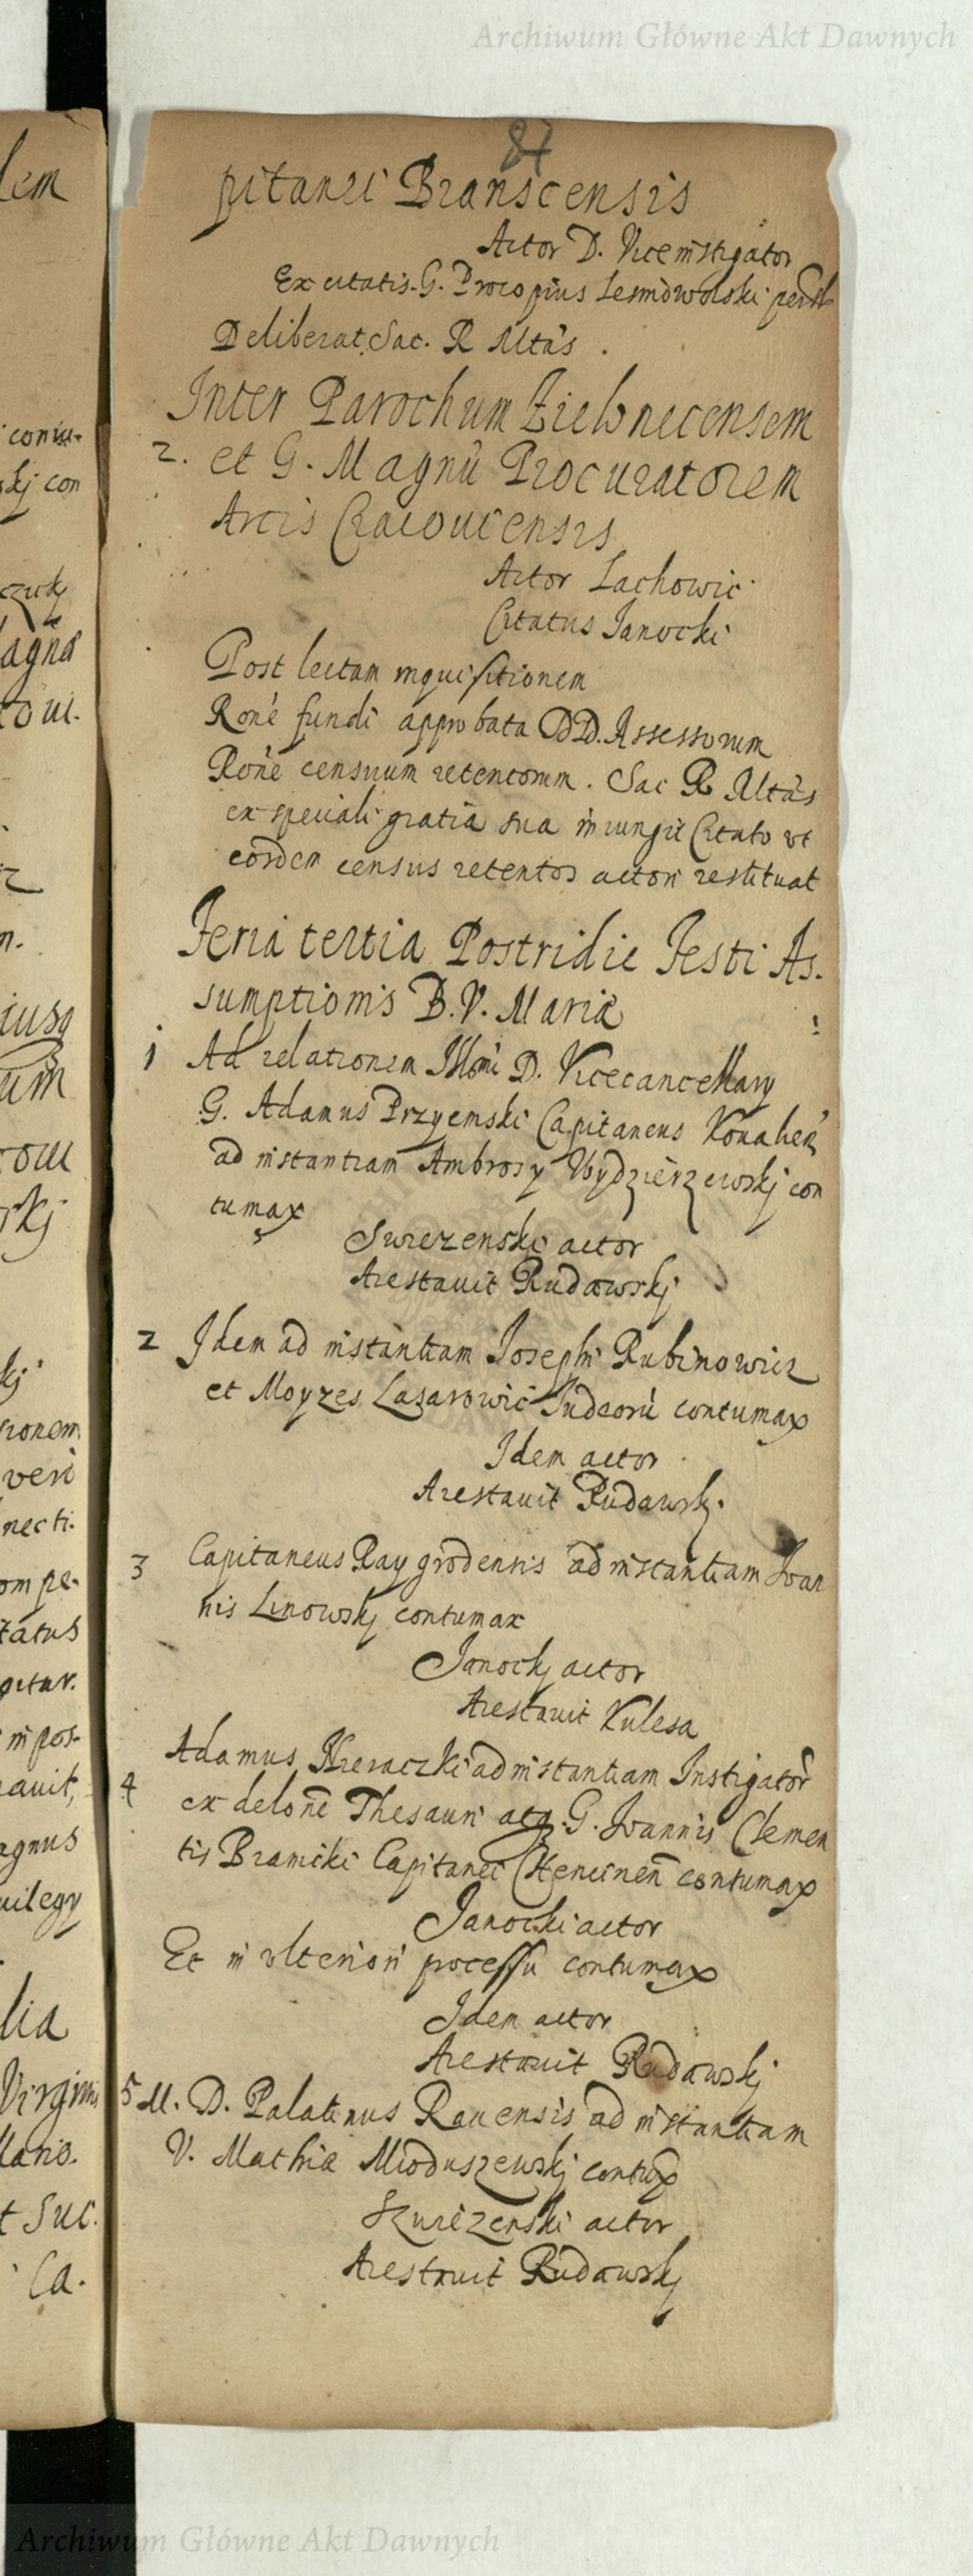 Archiwum Główne Akt Dawnych
87
pitanei Branscensis
Actor D. Viceinstigator
Ex citatis G. Procopius Lesniowolski
Deliberat Sac. R Mtas.
Inter Parochum Zielonecensem
2. et G. Magnũ Procuratorem
Arcis Cracouiensis
Actor Lachowic
Citatus Janocki
Post lectam inquisitionem
Rone fundi approbata DD. Assessorum
Rone censuum retentorum. Sac R Mtas
ex speciali gratia sua iniungit Citato vt
eosdem census retentos actori restituat
Feria tertia Postridie Festi As-
sumptionis B. V. Mariæ
1 Ad relationem Illmi D. Vicecancellarij
G. Adamus Przyemski Capitaneus
ad instantiam Ambrosy Wydzierzewskj con
tumax
actor
Arestauit Rudawskj
2 Idem ad instantiam Josephi Rubinowicz
et Moyzes Lazarowic Iudeorũ contumax
Idem actor
Arestauit Rudawskj.
3 Capitaneus Raygrodensis ad instantiam Ioan
nis Linowskj contumax
Janockj actor
Arestauit Kulesa
Adamus ad instantiam Instigator
4 ex delone Thesauri atq. G. Ioannis Clemen
tis Branicki Capitanei Chencinen contumax
Janocki actor
Et in vlteriori processu contumax
Idem actor
Arestauit Rudawskj
5 M. D. Palatinus Rauensis ad instantiam
V. Mathiæ Mioduszewskj
actor
Arestauit Rudawskj
lem
skj con
agna
iusq
um
rskj
ueri
necti-
tatus
in pos-
auit,
agnus
uilegy
lia
Virginis
t Suc.
Ca-
Archiwum Główne Akt Dawnych